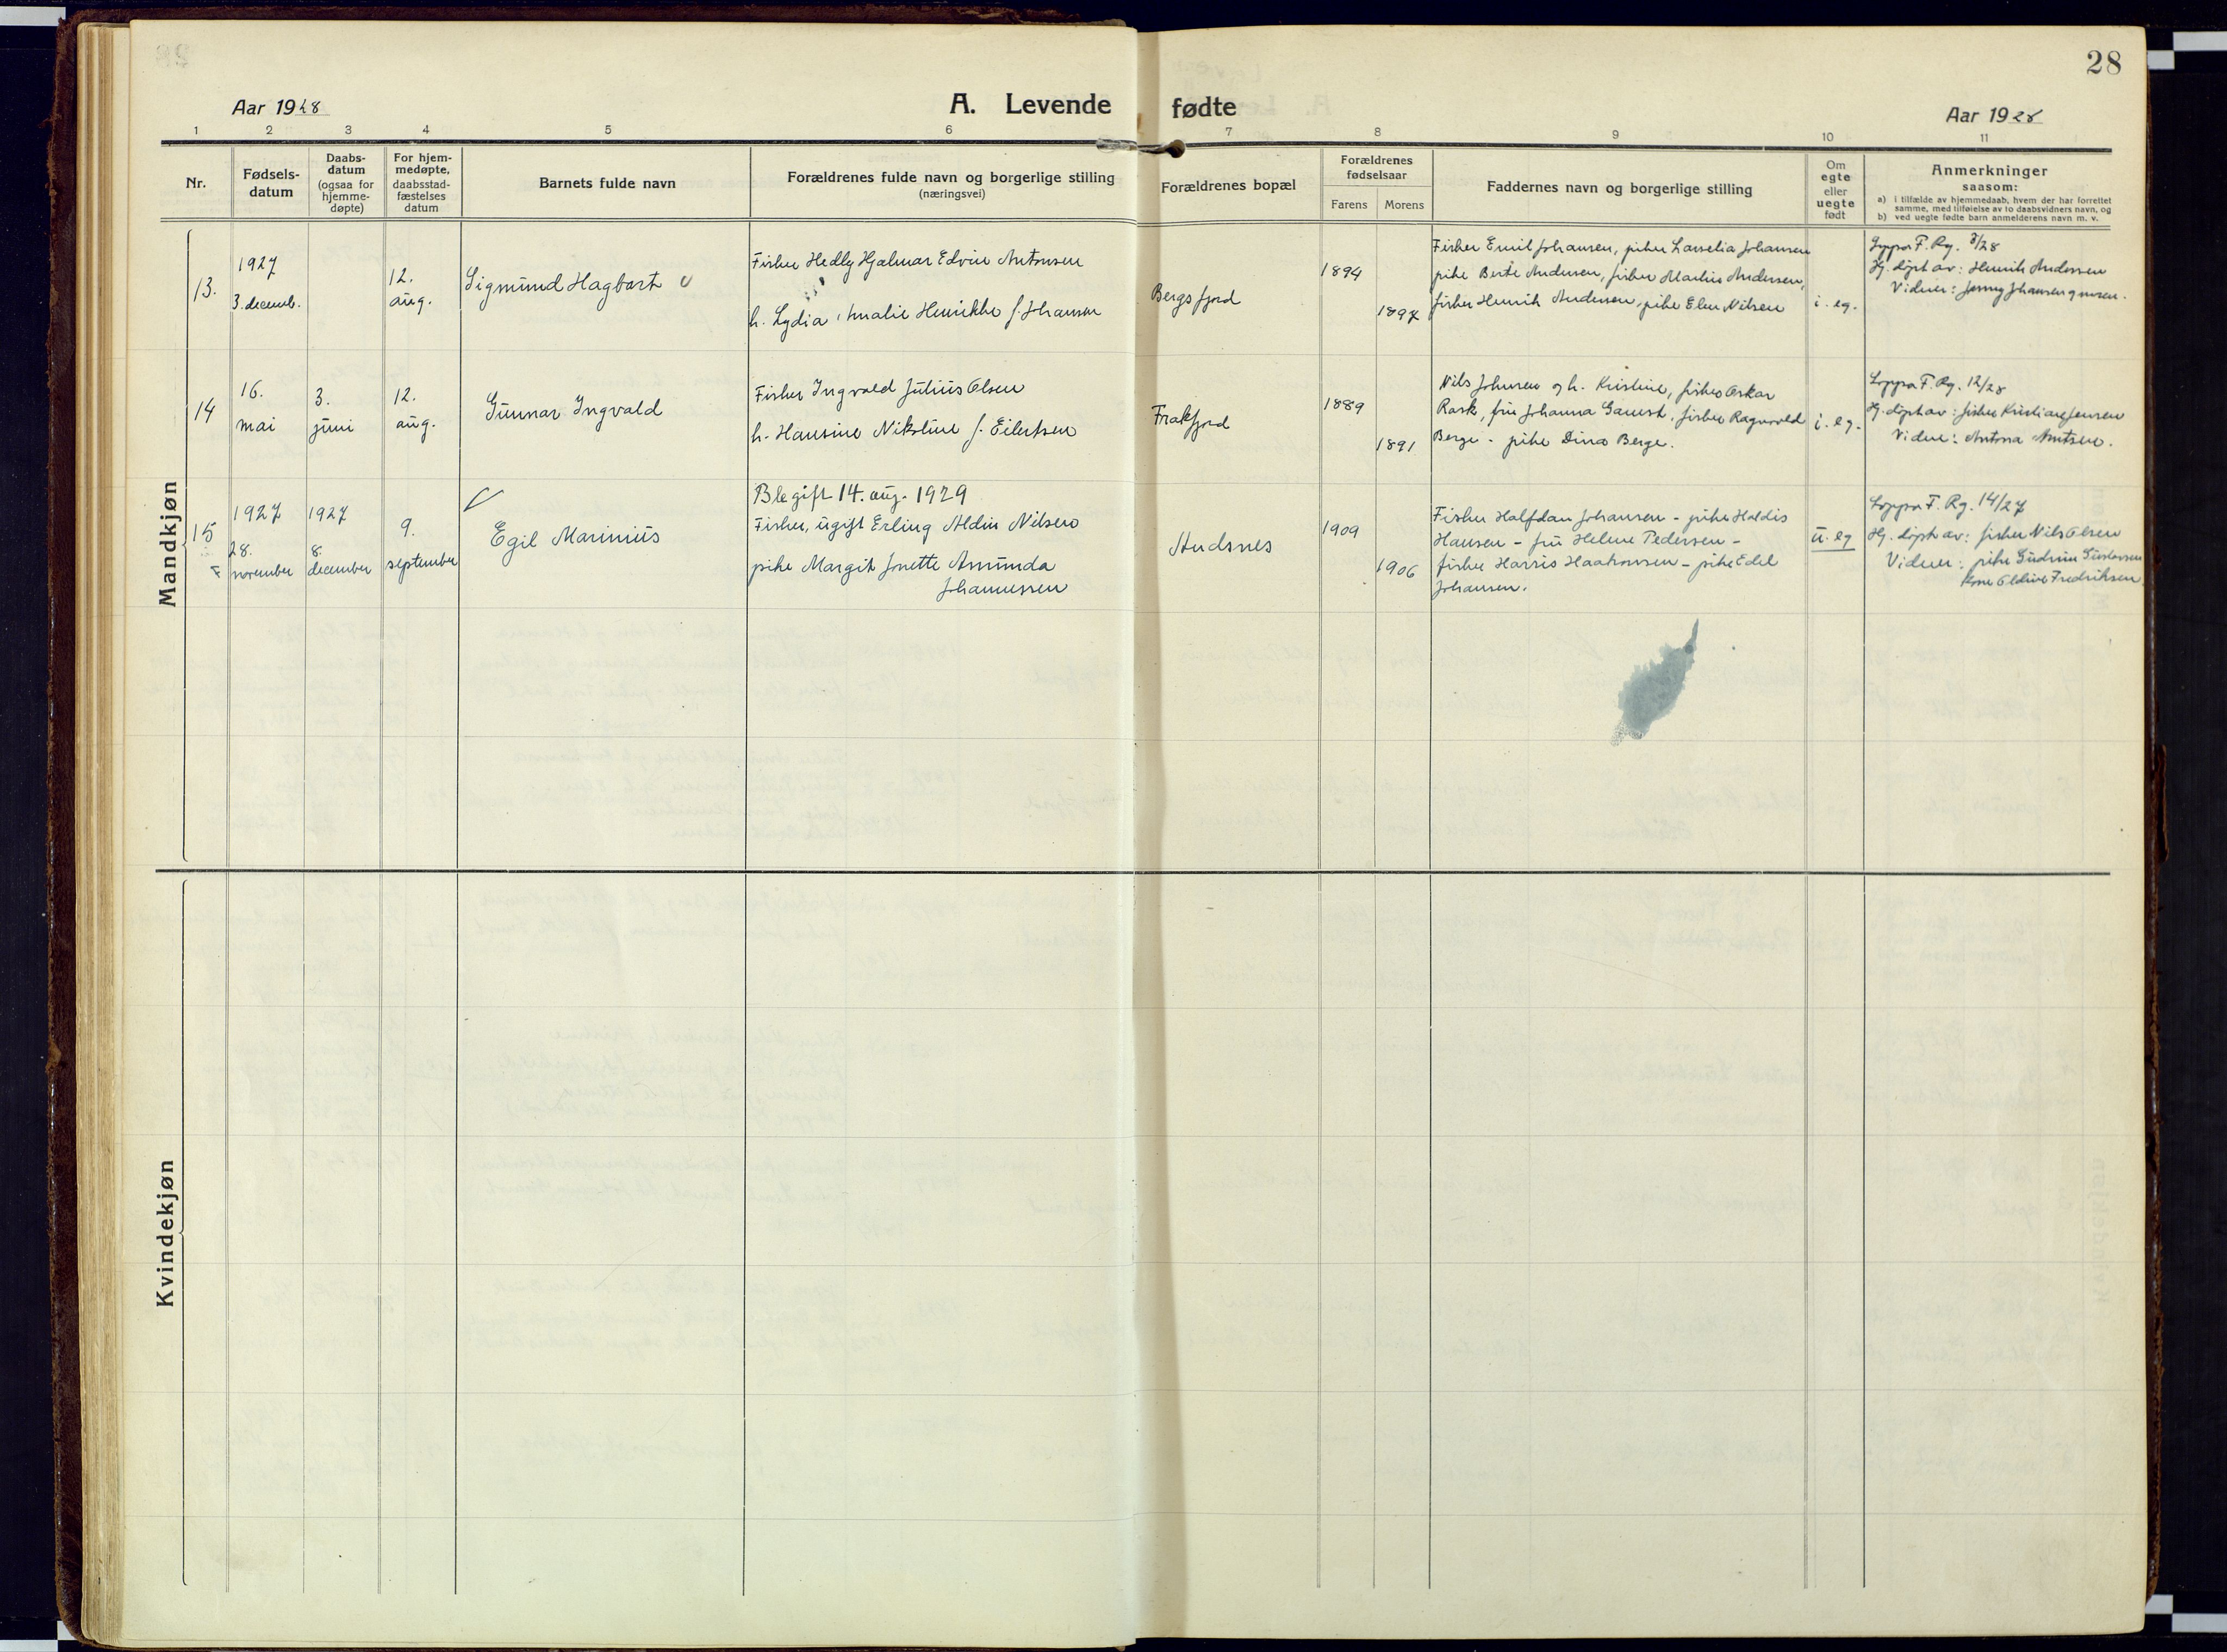 28
Aar 1928
A. Levende fødte
Aar 1928
1 2 3 4 5 6 7 8 9 10 11
Nr.
Fødsels-
datum
Daabs-
datum
(ogsaa for
hjemme-
døpte)
For hjem-
medøpte,
daabsstad-
fæstelses
datum
Barnets fulde navn
Forældrenes fulde navn og borgerlige stilling
(næringsvei)
Forældrenes bopæl
Forældrenes
fødselsaar
Farens Morens
Faddernes navn og borgerlige stilling
Om
egte
eller
uegte
født
Anmerkninger
saasom:
a) i tilfælde av hjemmedaab, hvem der har forrettet
samme, med tilføielse av to daabsvidners navn, og
b) ved uegte fødte barn anmelderens navn m. v.
Mandkjøn
13.
1927
3. decemb.
12.
aug.
Sigmund Hagbart
Fisker Hedly Hjalmar Edvin Antonsen
h. Lydia Amalie Henrikke f. Johansen
Bergsfjord
1894
1897
Fisker Emil Johansen, pike Larselia Johansen
pike Berte Andersen, fisker Martin Andersen,
fisker Henrik Andersen, pike Elen Nilsen
i. eg.
Loppa F. Rg. /28
Hj. døpt av: Henrik Andersen
Vidner: Jenny Johansen
14
16.
mai
3.
juni
12.
aug.
Gunnar Ingvald
Fisker Ingvald Julius Olsen
h. Hansine Nikoline f. Eilertsen
Frakfjord
1889
1891
Nils Johnsen og h. Kristine, fisker Oskar
Rask, fru Johanna Gamst, fisker Ragnvald
Berge - pike Dina Berge.
i. eg.
Loppa F. Rg. 12/28
Hj. døpt av: fisker Kristian Jensen
Vidne: Antona Antsen.
15
1927
28.
november
1927
8.
december
9.
september
Egil Marinius
Ble gift 14. aug. 1929
Fisker, ugift Erling Aldin Nilsen
pike Margit Jonette Amunda
Johannessen
Andsnes
1909
1906
Fisker Halfdan Johansen - pike Haldis
Hansen - fru Helene Pedersen -
fisker Harris Haakonsen - pike Edel
Johansen.
u. eg
Loppa F. Rg. 14/27
Hj. døpt av: fisker Nils Olsen
Vidner: pike Gudrun Gustavsen
kone Oldine Fredriksen.
Kvindekjøn